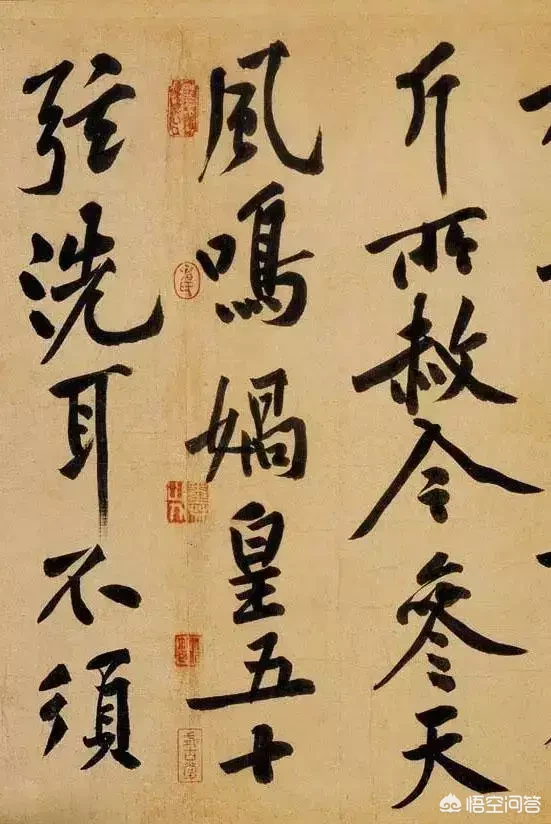 斤所赦今參天
風鳴媧皇五十
弦洗耳不須
悟空问答